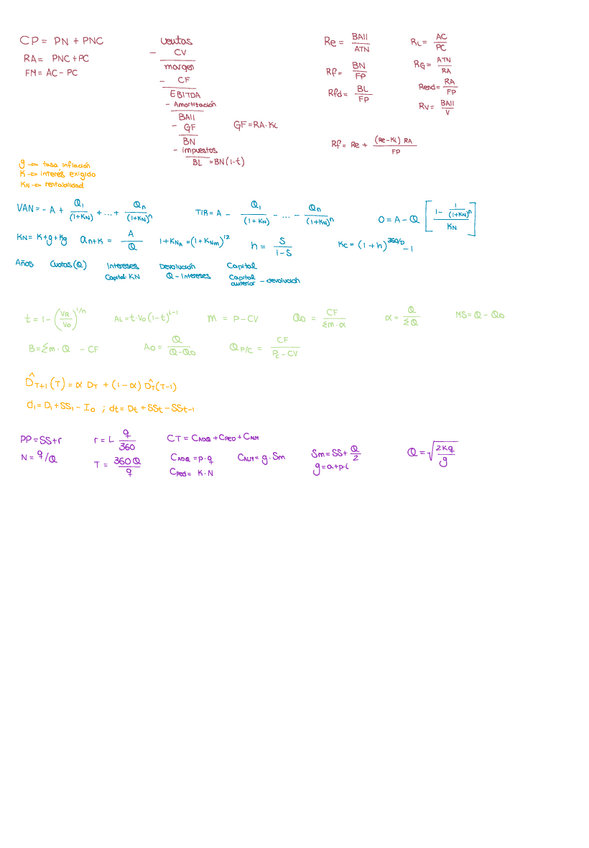 CP = PN + PNC
RA = PNC + PC
FM = AC - PC
ventas
- CV
margen
- CF
EBITDA
- Amortización
BAII
- GF
GF = RA · Ki
BN
- impuestos
BL = BN (1-t)
Re = BAII / ATN
Rf = BN / FP
Rfd = BL / FP
RL = AC / PC
RG = ATN / RA
Rend = RA / FP
RV = BAII / V
Rf = Re + (Re - Ki) RA / FP
g → tasa inflación
K → interés exigido
Ke → rentabilidad
VAN = - A + Q1 / (1+KN) + ... + Qn / (1+KN)^n
TIR = A - Q1 / (1+KN) - ... - Qn / (1+KN)^n
0 = A - Q [ 1 - 1 / (1+KN)^n / KN ]
KN = K + g + Kg
an¬K = A / Q
1 + KNa = (1 + KNm)^12
h = S / 1-S
Kc = (1 + h)^360/p - 1
Años Cuotas (Q) Intereses Devolución Capital
Capital · KN Q - Intereses Capital anterior - devolución
t = 1 - (VR / Vo)^1/n
Ai = t · Vo (1-t)^i-1
m = P - CV
Qo = CF / Σm · α
α = Q / ΣQ
MS = Q - Qo
B = Σm · Q - CF
Ao = Q / Q-Qo
Q P/C = CF / Pc - CV
D̂T+1 (T) = α DT + (1-α) D̂T (T-1)
d1 = D1 + SS1 - Io ; dt = Dt + SSt - SSt-1
PP = SS + r
N = q/Q
r = L q / 360
T = 360 Q / q
CT = CADQ + CPED + CALM
CADQ = p · q
CPED = K · N
CALM = g · Sm
Sm = SS + Q / 2
g = a + p · i
Q = √ 2Kq / g